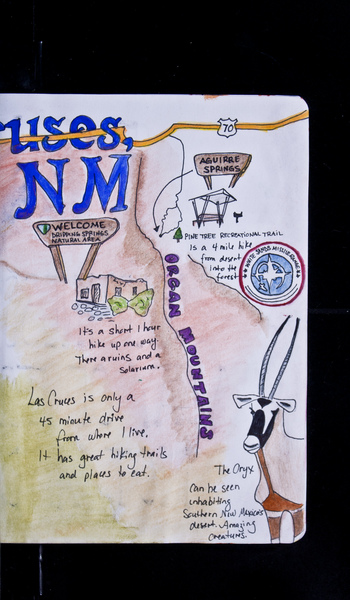 uses,
NM
70
AGUIRRE
SPRINGS
WELCOME
DRIPPING SPRINGS
NATURAL AREA
PINE TREE RECREATIONAL TRAIL
Is a 4 mile hike
from desert
into the
forest
WHITE SANDS MISSILE RANGE
ORGAN MOUNTAINS
It's a short 1 hour
hike up one way.
There a ruins and a
Solarium.
Las Cruces is only a
45 minute drive
from where I live.
It has great hiking trails
and places to eat.
The Oryx
can be seen
inhabiting
Southern New Mexico's
desert. Amazing
creatures.